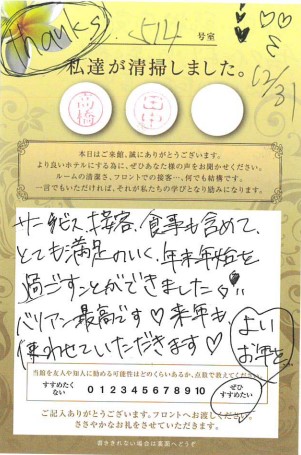 thanks. 514 号室
12/31
私達が清掃しました。
高橋 田中
本日はご来館、誠にありがとうございます。
より良いホテルにする為に、ぜひあなた様の声をお聞かせください。
ルームの清潔さ、フロントでの接客…何でも結構です。
一言でもいただければ、それが私たちの学びとなり励みになります。
サービス、接客、食事も含めて、
とても満足のいく、年末年始を
過ごすことができました
バリアン最高です♡来年も
使わせていただきます♡
よい
お年を。
当館を友人や知人に勧める可能性はどのくらいあるか、点数で教えてください。
すすめたくない 0 1 2 3 4 5 6 7 8 9 10 ぜひすすめたい
ご記入ありがとうございます。フロントへお渡しください。
ささやかなお礼をさせていただきます。
書ききれない場合は裏面へどうぞ